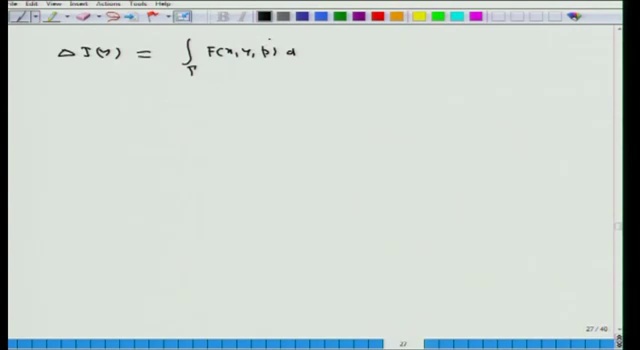 File Edit View Insert Actions Tools Help
Δ J(γ) = ∫_Γ F(x, y, p) d
27 / 40
27